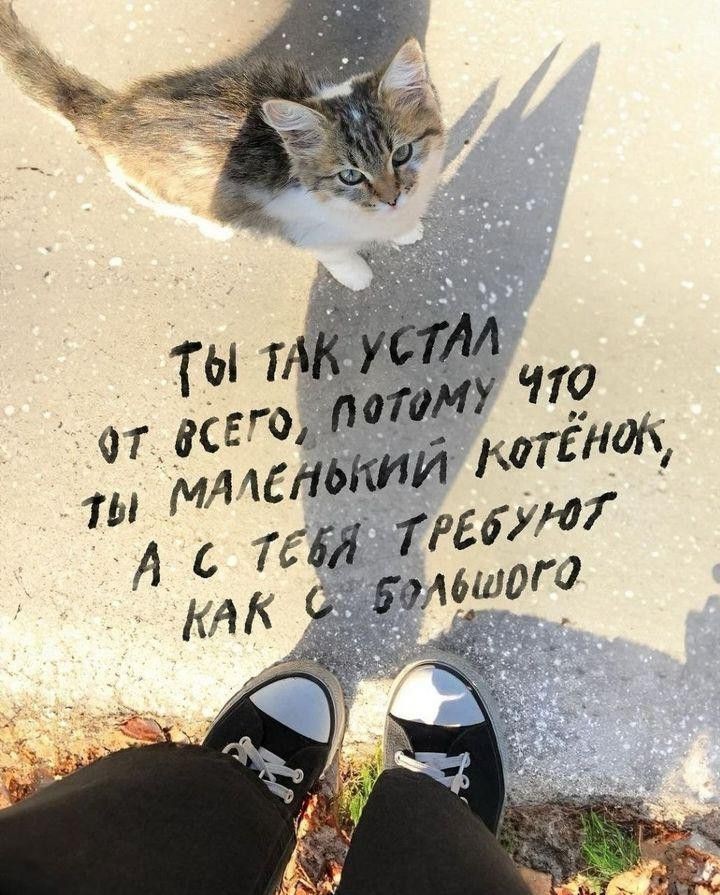 ТЫ ТАК УСТАЛ
ОТ ВСЕГО, ПОТОМУ ЧТО
ТЫ МАЛЕНЬКИЙ КОТЁНОК,
А С ТЕБЯ ТРЕБУЮТ
КАК С БОЛЬШОГО